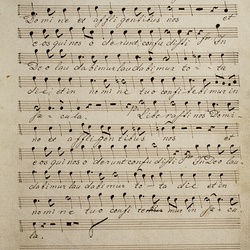 Domine et affligentibus nos et
eos qui nos oderunt confudisti In
Deo laudabimur laudabimur to - ta
die, et in nomine tuo confitebimur in
sæcula. Liberasti nos Domi-
ne et affligentibus nos et
eos qui nos oderunt confudisti In Deo lau-
dabimur laudabimur to - ta die et in
nomine tuo confitemur in sæcu-
la.